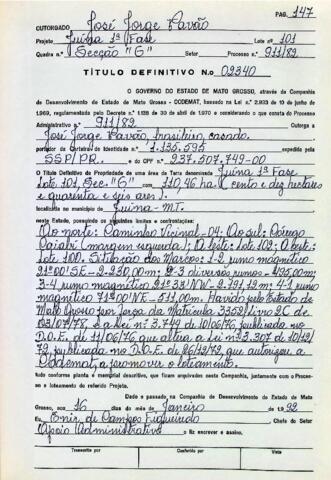 PAG. 147
OUTORGADO José Jorge Pavão
Projeto Juína 1ª Fase Lote 101
Quadra n.º Secção "G" Setor Processo n.º 911/82
TÍTULO DEFINITIVO N.o 02340
O GOVERNO DO ESTADO DE MATO GROSSO, através da Companhia
de Desenvolvimento do Estado de Mato Grosso - CODEMAT, baseado na Lei n.º 2.933 de 19 de junho de
1969, regulamentada pelo Decreto n.º 1128 de 30 de abril de 1970 e considerando o que consta do Processo
Administrativo n.º 911/82 Outorga a
José Jorge Pavão, brasileiro, casado.
portador da Carteira de Identidade n.º 1.135.595 expedida pela
SSP/PR. e do CPF n.º 237.507.749-00
O Título Definitivo de Propriedade de uma área de Terra denominada Juína 1ª Fase
Lote 101, Sec. "G" com 110,46 ha (cento e dez hectares
e quarenta e seis ares).
localizada no município de Juína-MT.
neste Estado, possuindo os seguintes limites e confrontações:
Ao norte: Caminho Vicinal-04; Ao sul: Córrego
Caiabi (margem esquerda); A leste: Lote 102; A oeste:
Lote 100. Situação dos Marcos: 1-2 rumo magnético
21º00'SE-2.230,00m; 2-3 diversos rumos- 495,00m;
3-4 rumo magnético 21º33'NW-2.191,12m; 4-1 rumo
magnético 71º00'NE-511,00m. Havido pelo Estado de
Mato Grosso por força da Matrícula 3352 Livro 2C de
03/07/78, e a Lei nº 3.744 de 10/06/76, publicada no
D.O.E. de 11/06/76 que altera a Lei nº 3.307 de 10/12/
72, publicada no D.O.E. de 26/12/72 que autorizou a
Codemat, a promover o loteamento.
tudo conforme planta e memorial descritivo, que ficam arquivados nesta Companhia, juntamente com o Proces-
so e loteamento do referido Projeto.
Dado e passado na Companhia de Desenvolvimento do Estado de Mato
Grosso, aos 16 dias do mês de Janeiro de 1992
Eu Enir de Campos Figueiredo Chefe do Setor
Apoio Administrativo o fiz escrever e assino.
Transcrito por Conferido por Visto